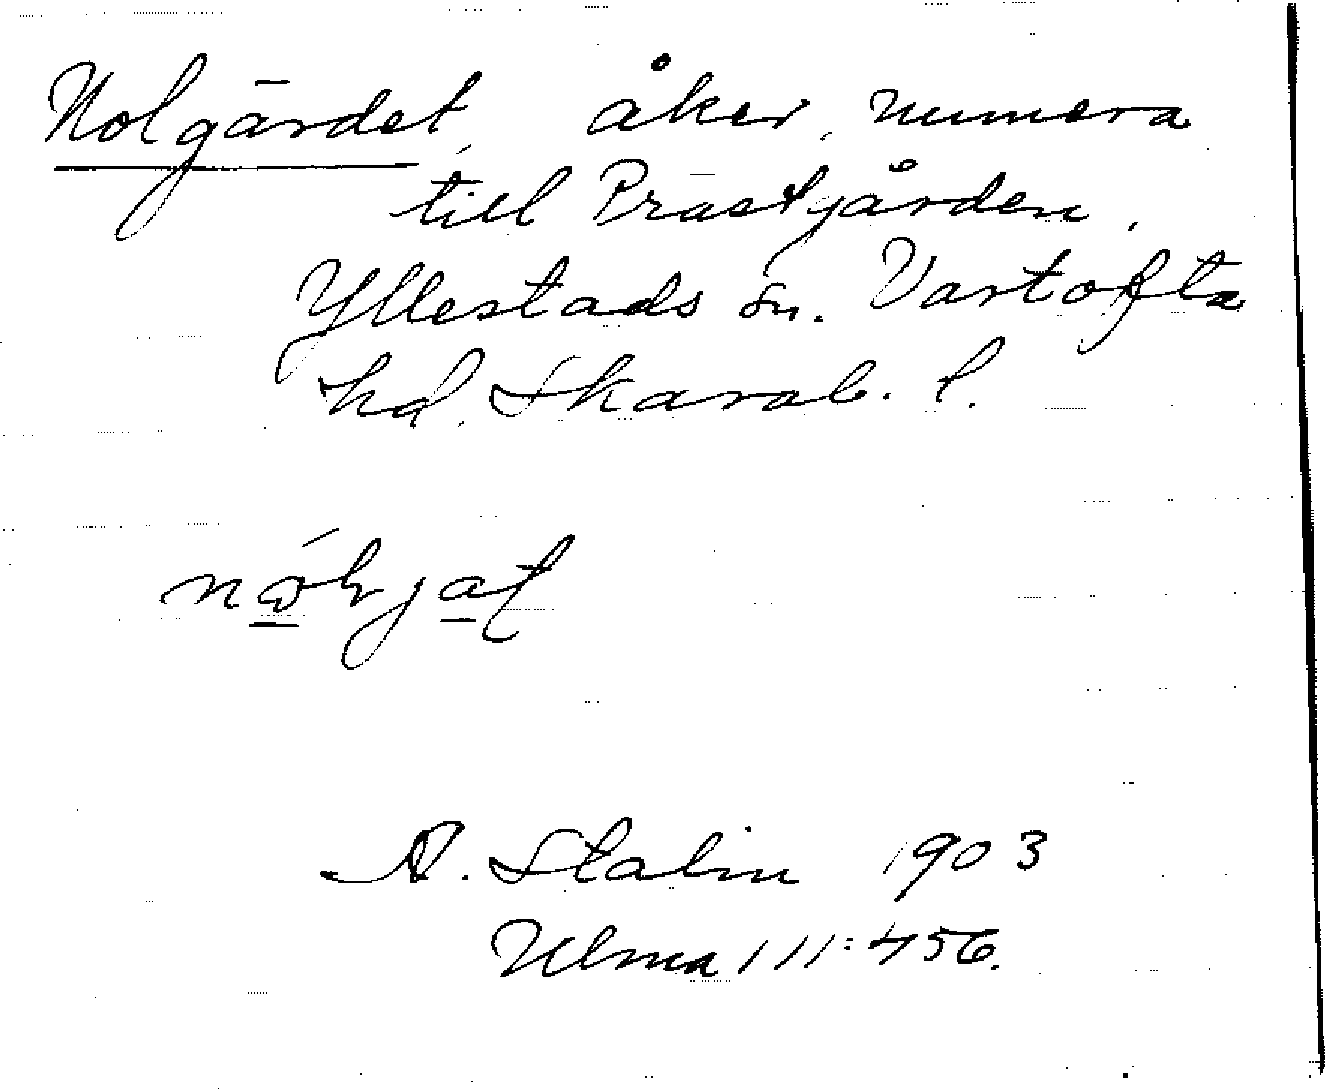 Nolgärdet, åker, numera
till Prästgården,
Yllestads sn. Vartofta
hd. Skarab. l.
A. Stalin 1903
Ulma 111:456.